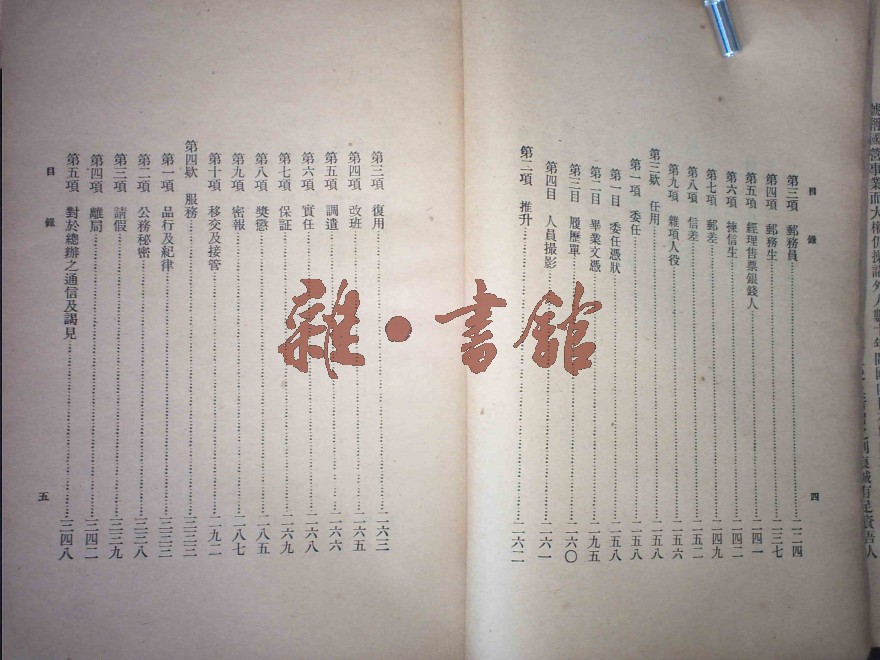 目錄
第三項 郵務員 二二四
第四項 郵務生 二三七
第五項 經理售票銀錢人 二四一
第六項 揀信生 二四二
第七項 郵差 二四九
第八項 信差 二五二
第九項 雜項人役 二五六
第三欵 任用 二五八
第一項 委任 二五八
第一目 委任憑狀 二五八
第二目 畢業文憑 二五九
第三目 履歷單 二六〇
第四目 人員撮影 二六一
第二項 推升 二六二
四
目錄
第三項 復用 二六三
第四項 改班 二六五
第五項 調遣 二六六
第六項 實任 二六八
第七項 保証 二六九
第八項 獎懲 二八五
第九項 密報 二八七
第十項 移交及接管 二九二
第四欵 服務 三三三
第一項 品行及紀律 三三三
第二項 公務秘密 三三八
第三項 請假 三三九
第四項 離局 三四二
第五項 對於總辦之通信及謁見 三四八
五
雜·書館